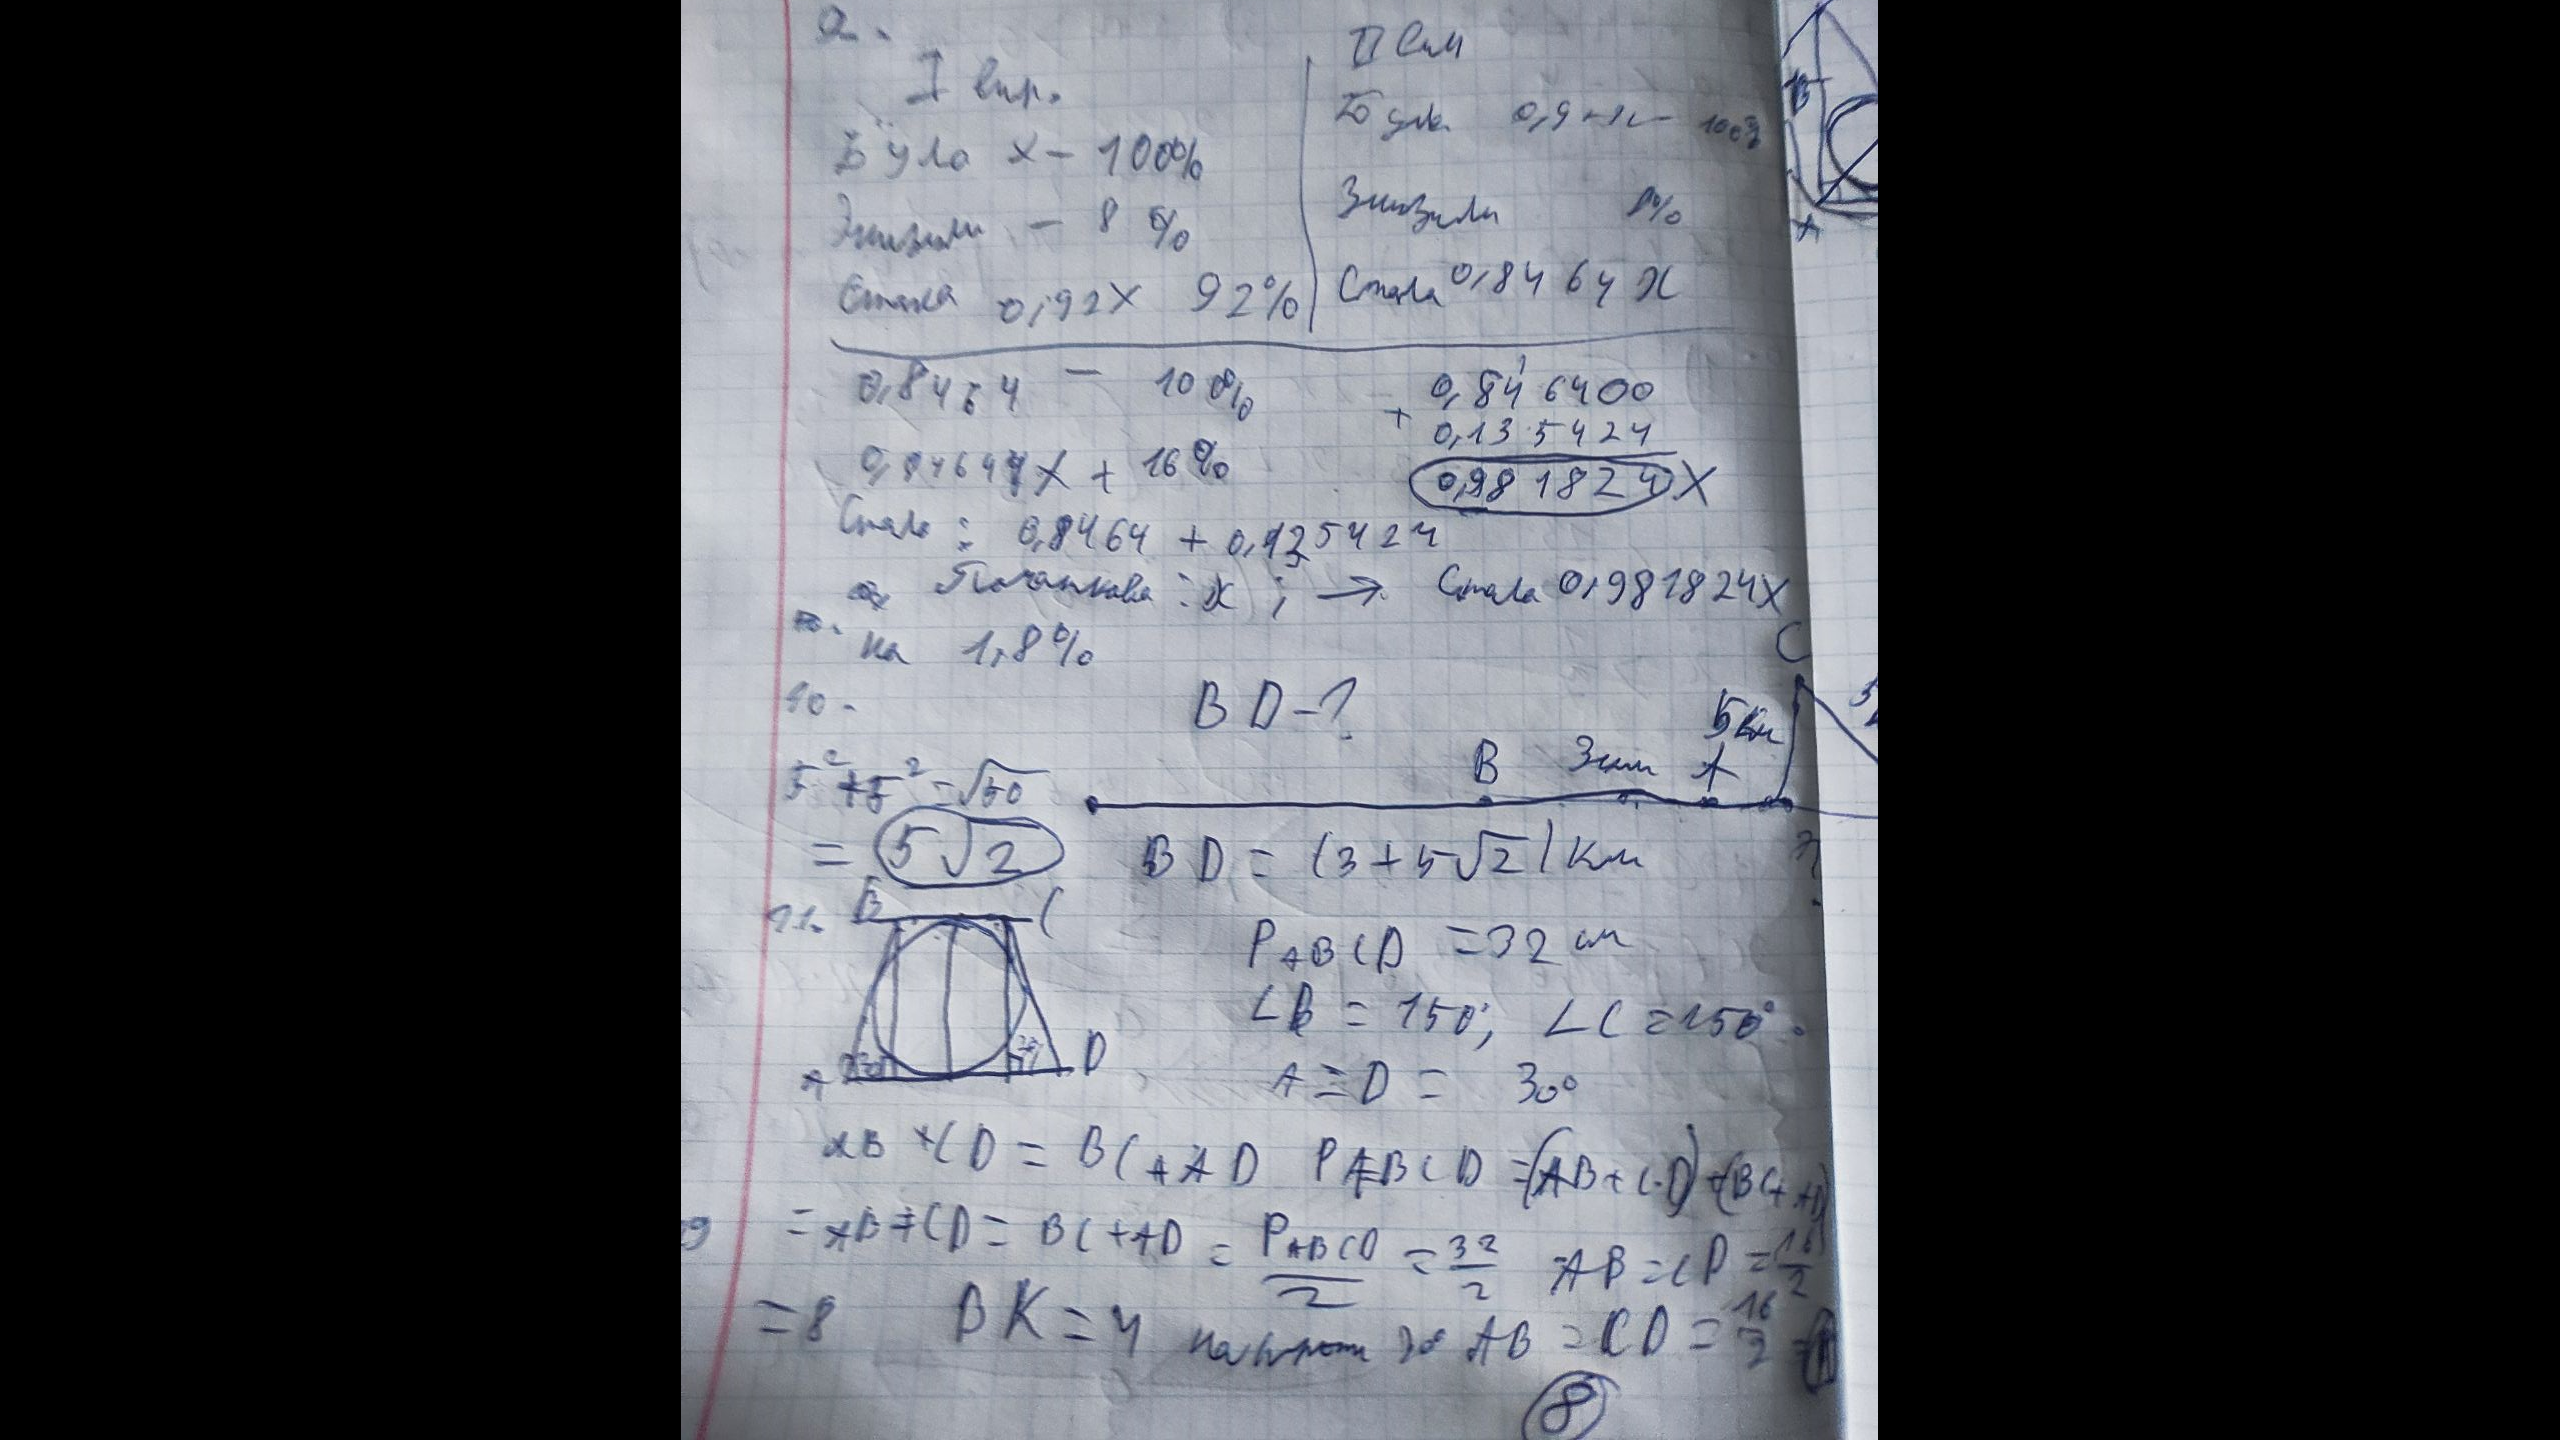 I вир.
Була x - 100%
Знизили - 8 %
Стала 0,92x 92%
II Сим
Була 0,9 100%
Знизили 8%
Стала 0,8464 x
0,8464 - 100%
0,84644x + 16%
0,846400
+ 0,135424
0,981824 x
Стало : 0,8464 + 0,135424
Початкова : x ; → Стала 0,981824x
на 1,8%
10.
BD - ?
C
5км
B 3км A
5² + 5² = √50
= 5√2
BD = (3 + 5√2) км
11.
B C
A D
P ABCD = 32 см
∠B = 150°, ∠C = 150°.
A = D = 30°
AB + CD = BC + AD P ABCD = (AB + CD) + (BC + AD)
= AB + CD = BC + AD = P ABCD / 2 = 32/2 AB = CD = 16/2
= 8 BK = 4 навпроти 30° AB = CD = 16/2 =
8